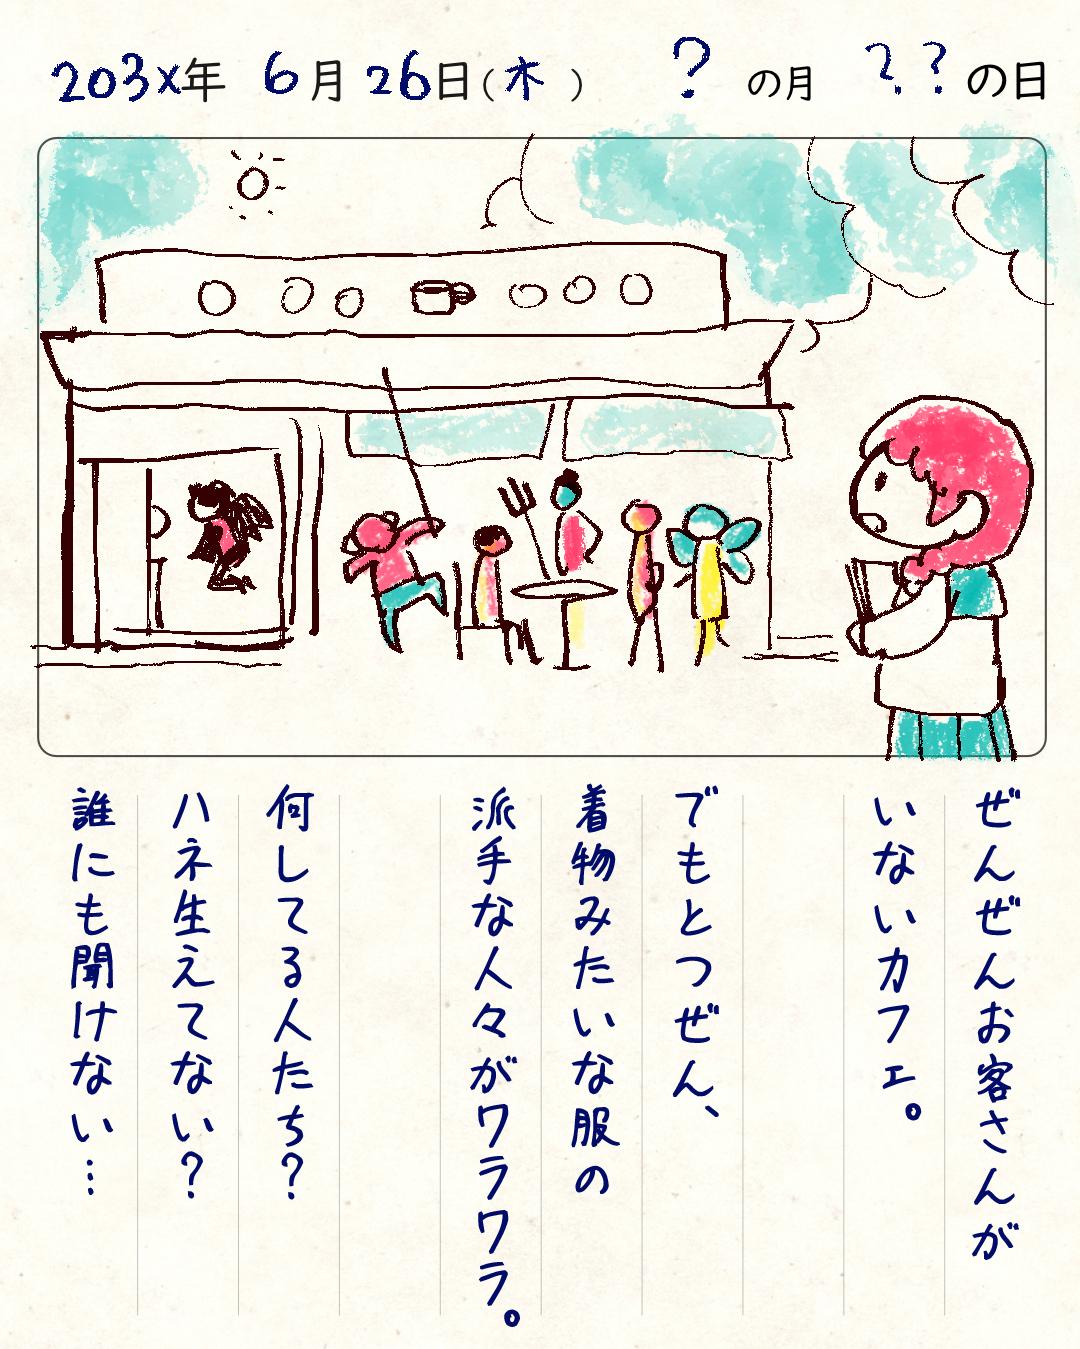 203x年 6月26日(木) ?の月 ??の日
ぜんぜんお客さんが
いないカフェ。
でもとつぜん、
着物みたいな服の
派手な人々がワラワラ。
何してる人たち?
ハネ生えてない?
誰にも聞けない…